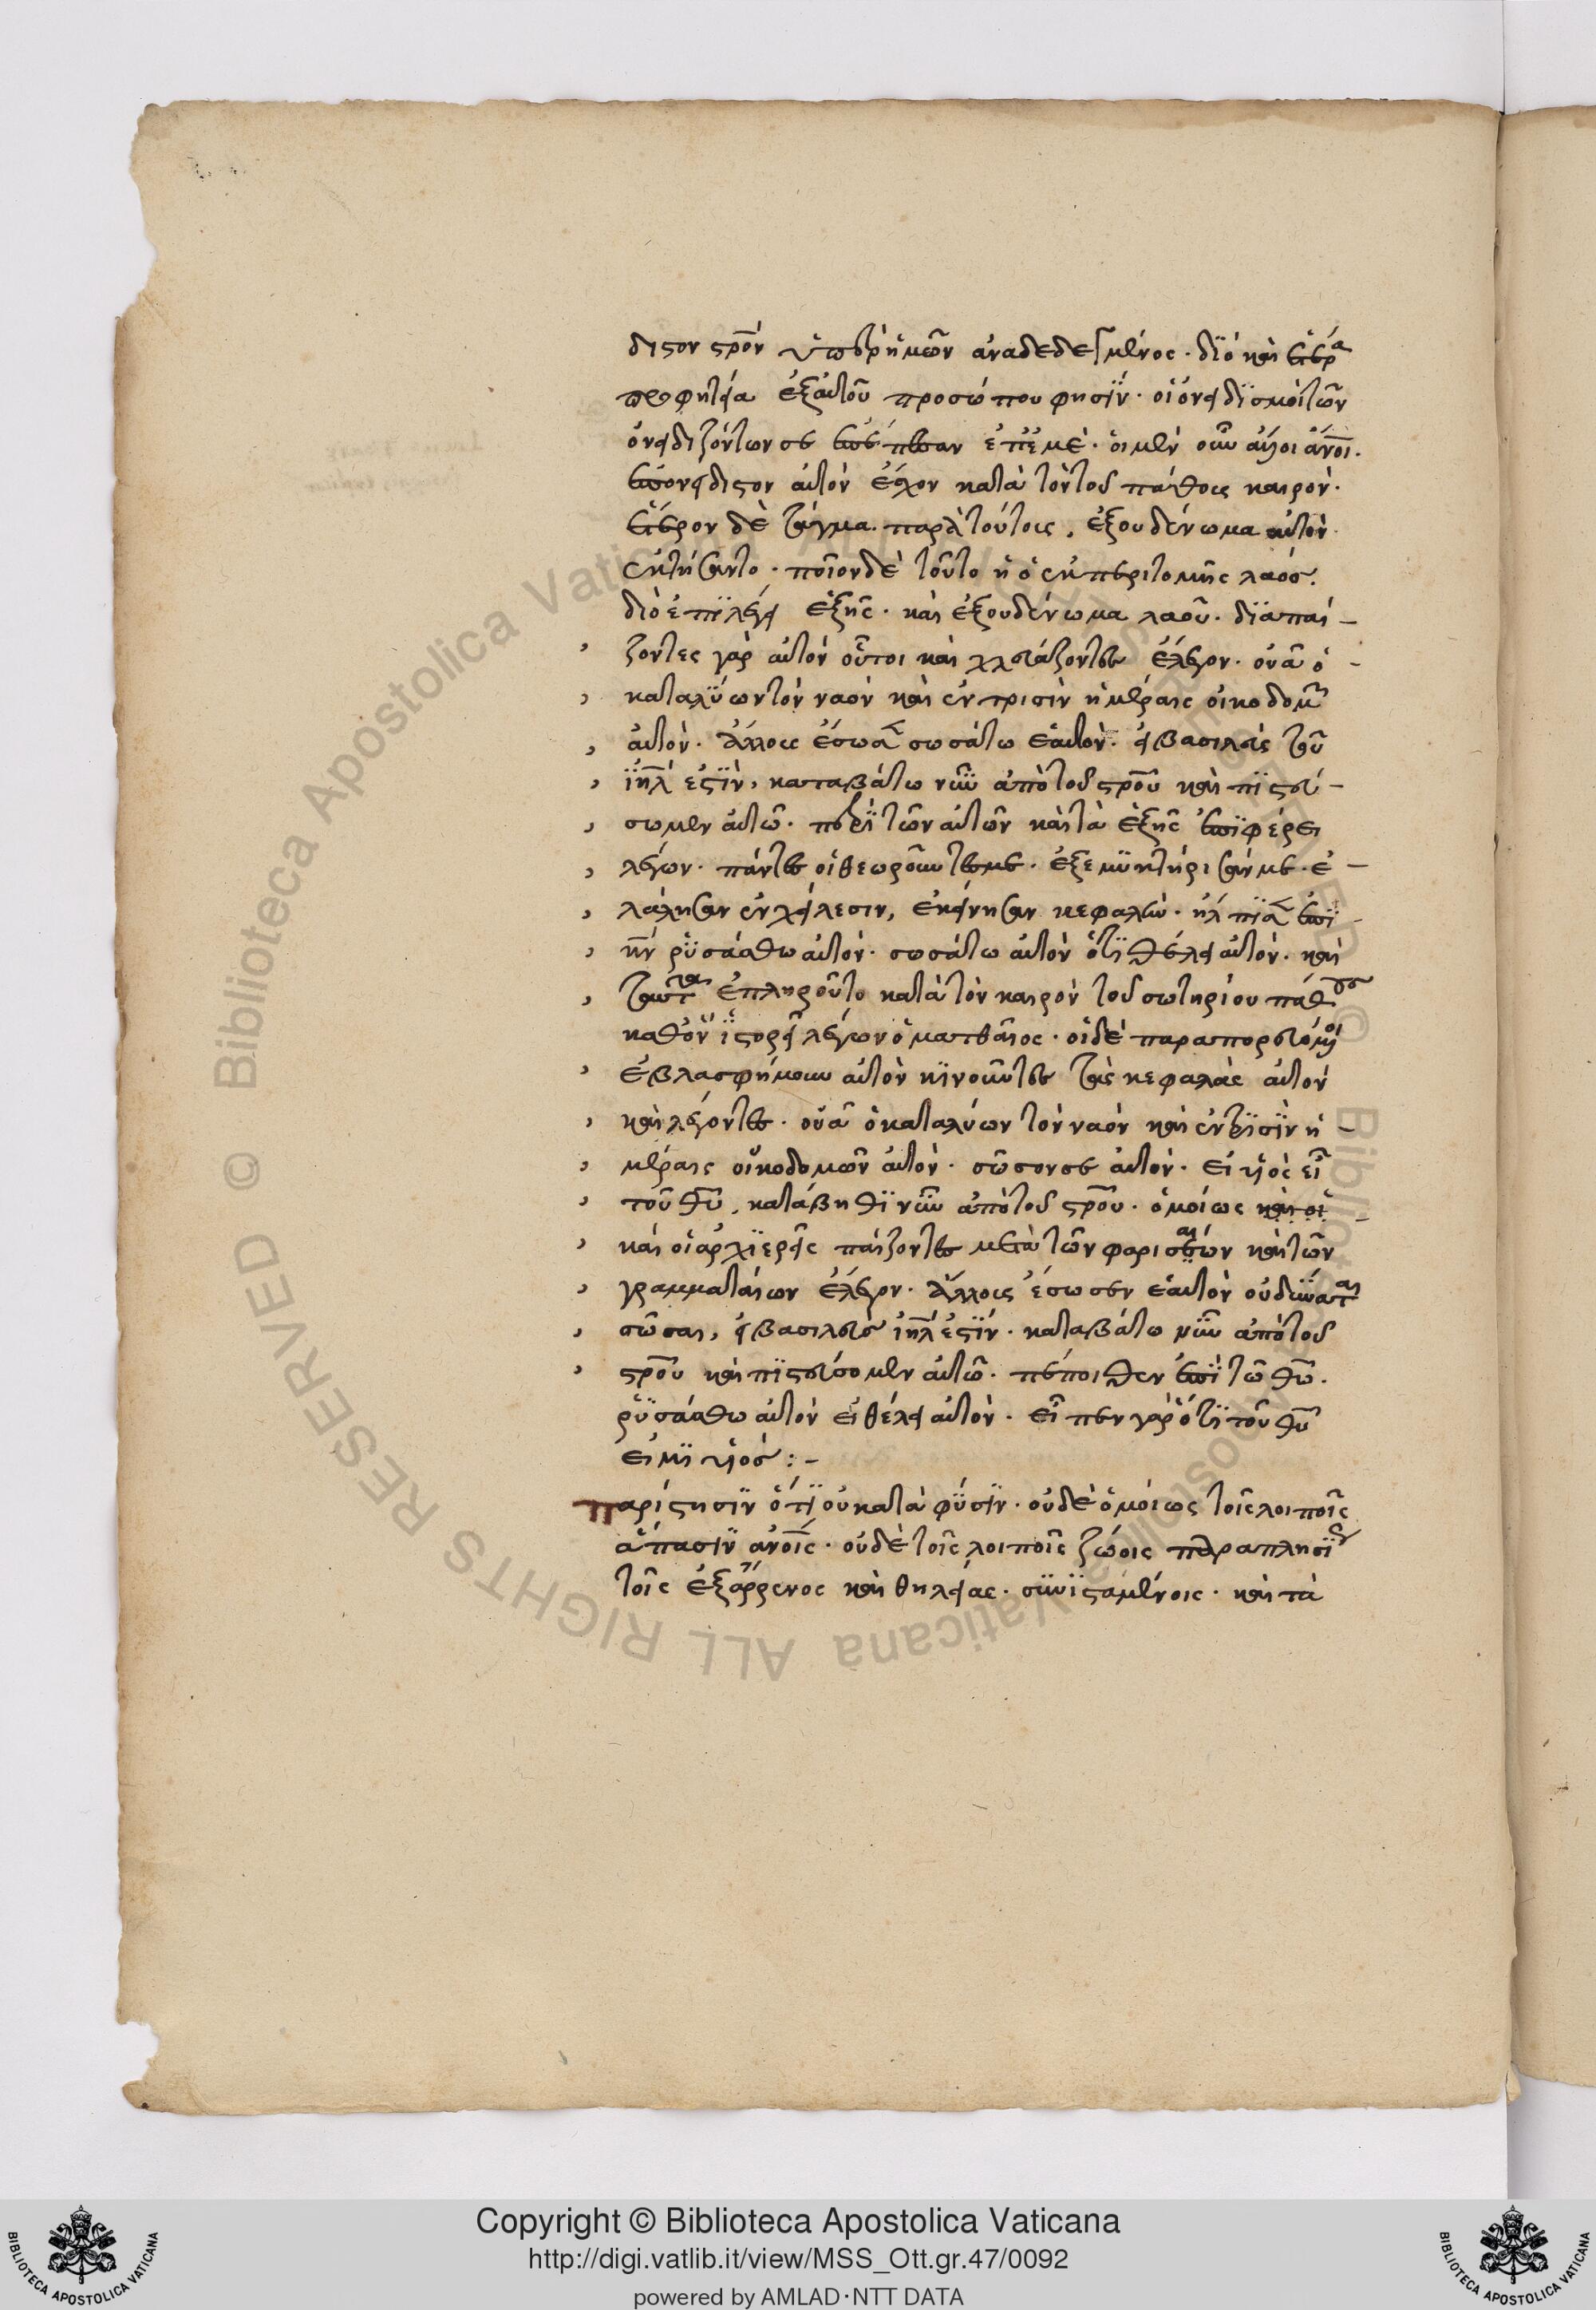 διστον στρον ὑπὲρ ἡμῶν ἀναδεδεγμένος· διὸ καὶ ἑτέρα
προφητεία ἐξ αὐτοῦ προσώπου φησίν· οἱ ὀνειδισμοὶ τῶν
ὀνειδιζόντων σε ἐπέπεσαν ἐπ' ἐμὲ· οἱ μὲν οὖν ἅγιοι ἄνοι·
ἐπονείδιστον αὐτὸν ἔχον κατὰ τὸν τοῦ πάθους καιρόν·
ἕτερον δὲ τάγμα παρὰ τούτοις, ἐξουδένωμα αὐτὸν
ἐκτήσαντο· ποῖον δὲ τοῦτο ἢ ὁ ἐκ περιτομῆς λαός·
διὸ ἐπιλέγει ἑξῆς· καὶ ἐξουδένωμα λαοῦ· διαπαί-
ζοντες γὰρ αὐτὸν οὗτοι καὶ χλευάζοντες ἔλεγον· οὐὰ ὁ
καταλύων τὸν ναὸν καὶ ἐν τρισὶν ἡμέραις οἰκοδομῶν
αὐτὸν· ἄλλους ἔσωσε σωσάτω ἑαυτόν· εἰ βασιλεὺς τοῦ
ἰηλ ἐστὶν, καταβάτω νῦν ἀπὸ τοῦ στροῦ καὶ πιστεύ-
σωμεν αὐτῶ· περὶ τῶν αὐτῶν καὶ τὰ ἑξῆς ἐπιφέρει
λέγων· πάντες οἱ θεωροῦντές με· ἐξεμυκτήρισάν με· ἐ-
λάλησαν ἐν χείλεσιν, ἐκίνησαν κεφαλὴν· ἤλπισεν ἐπὶ
κν ῥυσάσθω αὐτόν· σωσάτω αὐτὸν ὅτι θέλει αὐτόν· καὶ
ταῦτα ἐπληροῦτο κατὰ τὸν καιρὸν τοῦ σωτηρίου πάθους
καθ' ὃν ἱστορεῖ λέγων ὁ ματθαῖος· οἱ δὲ παραπορευόμενοι
ἐβλασφήμουν αὐτὸν κινοῦντες τὰς κεφαλὰς αὐτῶν
καὶ λέγοντες· οὐὰ ὁ καταλύων τὸν ναὸν καὶ ἐν τρισὶν ἡ-
μέραις οἰκοδομῶν αὐτόν· σῶσον σε αὐτόν· εἰ υἱὸς εἶ
τοῦ θυ, κατάβηθι νῦν ἀπὸ τοῦ στροῦ· ὁμοίως καὶ οἱ
καὶ οἱ ἀρχιερεῖς παίζοντες μετὰ τῶν φαρισαίων καὶ τῶν
γραμματαίων ἔλεγον· ἄλλους ἔσωσεν ἑαυτὸν οὐ δύναται
σῶσαι, εἰ βασιλεὺς ἰηλ ἐστίν· καταβάτω νῦν ἀπὸ τοῦ
στροῦ καὶ πιστεύσομεν αὐτῶ· πέποιθεν ἐπὶ τῶ θω·
ῥυσάσθω αὐτὸν εἰ θέλει αὐτόν· εἶπεν γὰρ ὅτι τοῦ θυ
εἰμὶ υἱός:-
παρίστησιν ὅτι οὐ κατὰ φύσιν· οὐδὲ ὁμοίως τοῖς λοιποῖς
ἅπασιν ἀνοις· οὐδὲ τοῖς λοιποῖς ζώοις παραπλησίως
τοῖς ἐξ ἄρρενος καὶ θηλείας· συνισταμένοις· κατὰ
Copyright © Biblioteca Apostolica Vaticana
http://digi.vatlib.it/view/MSS_Ott.gr.47/0092
powered by AMLAD·NTT DATA
BIBLIOTECA APOSTOLICA VATICANA
BIBLIOTECA APOSTOLICA VATICANA
© Biblioteca Apostolica Vaticana ALL RIGHTS RESERVED